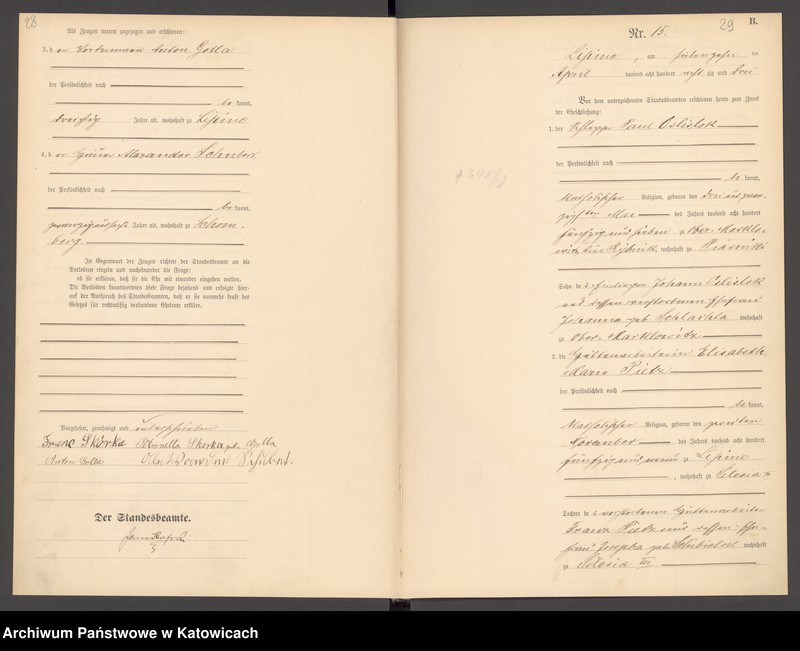 28
Als Zeugen waren zugezogen und erschienen:
3. der Vorkommen Anton Golla
der Persönlichkeit nach
bekannt,
dreißig Jahre alt, wohnhaft zu Lipine
4. der Alexander
der Persönlichkeit nach
bekannt,
Jahre alt, wohnhaft zu Schom-
berg
In Gegenwart der Zeugen richtete der Standesbeamte an die
Verlobten einzeln und nacheinander die Frage:
ob sie erklären, daß sie die Ehe mit einander eingehen wollen.
Die Verlobten beantworteten diese Frage bejahend und erfolgte hier-
auf der Ausspruch des Standesbeamten, daß er sie nunmehr kraft des
Gesetzes für rechtmäßig verbundene Eheleute erkläre.
Vorgelesen, genehmigt und unterschrieben
Franc Skorka Skorka geb. Golla
Anton Golla
Der Standesbeamte.
29 B.
Nr. 15.
Lipine, am siebenzehn ten
April tausend acht hundert acht zig und drei
Vor dem unterzeichneten Standesbeamten erschienen heute zum Zweck
der Eheschließung:
1. der Paul Oslislok
der Persönlichkeit nach
bekannt,
katholischer Religion, geboren den drei und zwan-
zigsten Mai des Jahres tausend acht hundert
fünfzig und sieben zu Ober-Markło-
witz, Kreis Rybnik, wohnhaft zu Piasniki
Sohn des Johann Oslislok
und dessen verstorbenen Ehefrau
Johanna geb. Schlachta wohnhaft
zu Ober-Marklowitz
2. die Hüttenarbeiterin Elisabeth
Marie Pietz
der Persönlichkeit nach
bekannt,
katholischer Religion, geboren den zweiten
November des Jahres tausend acht hundert
fünfzig und neun zu Lipine
, wohnhaft zu Silesia
Tochter des verstorbenen Hüttenarbeiter
Franz Pietz und dessen Ehe-
frau Josepha geb. wohnhaft
zu Silesia III
Archiwum Państwowe w Katowicach